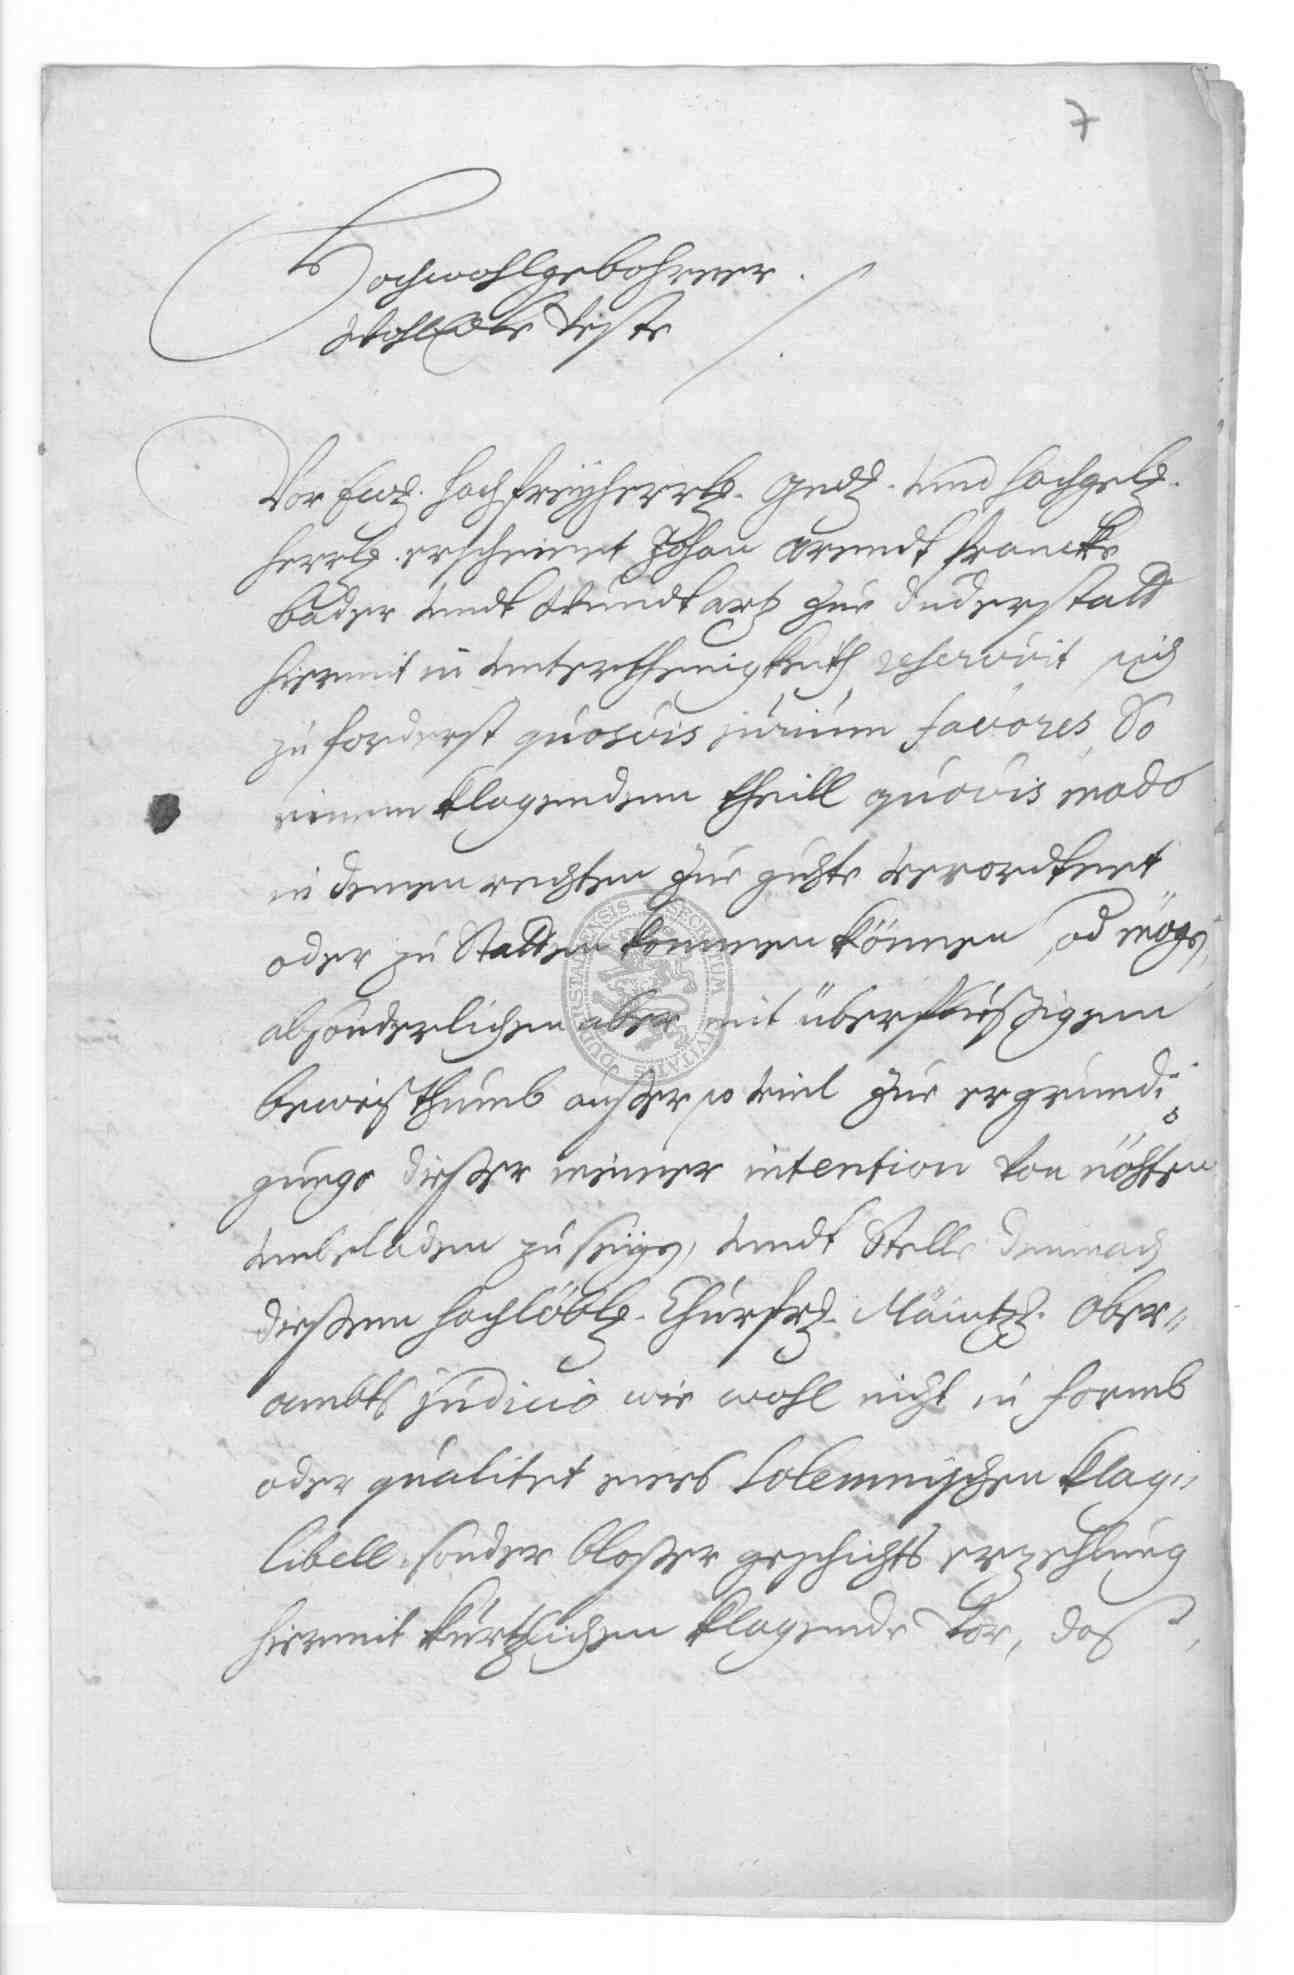 7
Hochwohlgebohrner
WohlEdle Veste
Vor Ewd. hochfreyherrl. Gnd. und hochgel.
herrl. erscheinet Johan Arendt Francke
bader undt Wundtartz zue Duderstatt
hiermit in unterthenigkeith reservirt sich
zu forderst quosvis jurium favores, So
einem klagendem theill quovis modo
in denen rechten zue guhte verordtnet
oder zu Statten kommen können, od mögen,
absonderlichen aber mit überflüßigem
beweisthumb außer so viel zue ergründi
gunge dießer meiner intention von nöhten
unbeladen zu seyn, undt Stelle demnach
dießem hochlöbl. Churfrl. Mäintz. Ober„
ambts Judicio wie wohl nicht in formb
oder qualitet eines Solemnischen klag„
libell sonder bloßer geschichts erzehlung
hiermit kürtzlichen klagende vor, das
DUDERSTADENSIS SECRETUM CIVITATIS